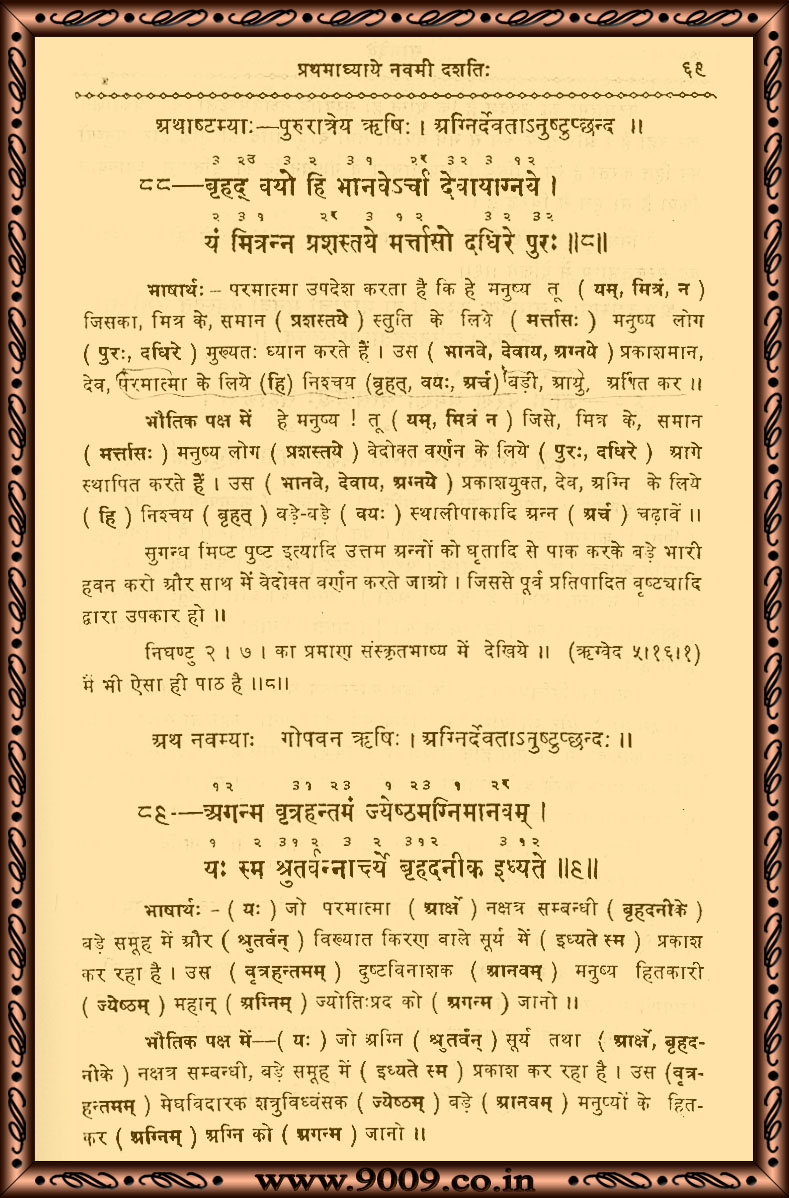 प्रथमाध्याये नवमी दशतिः ६९
अथाष्टम्याः—पुरुरात्रेय ऋषिः । अग्निर्देवताऽनुष्टुप्छन्द ॥
३ २उ ३ २ ३ १ २र ३२ ३ १२
८८—बृहद् वयो हि भानवेऽर्चा देवायाग्नये ।
२ ३१ २र ३ १२ ३ २ ३२
यं मित्रन्न प्रशस्तये मर्त्तासो दधिरे पुरः ॥८॥
भाषार्थः – परमात्मा उपदेश करता है कि हे मनुष्य तू ( यम्, मित्रं, न )
जिसका, मित्र के, समान ( प्रशस्तये ) स्तुति के लिये ( मर्त्तासः ) मनुष्य लोग
( पुरः, दधिरे ) मुख्यतः ध्यान करते हैं । उस ( भानवे, देवाय, अग्नये ) प्रकाशमान,
देव, परमात्मा के लिये (हि) निश्चय (बृहत्, वयः, अर्च) बड़ी, आयु, अर्पित कर ॥
भौतिक पक्ष में हे मनुष्य ! तू ( यम्, मित्रं न ) जिसे, मित्र के, समान
( मर्त्तासः ) मनुष्य लोग ( प्रशस्तये ) वेदोक्त वर्णन के लिये ( पुरः, दधिरे ) आगे
स्थापित करते हैं । उस ( भानवे, देवाय, अग्नये ) प्रकाशयुक्त, देव, अग्नि के लिये
( हि ) निश्चय ( बृहत् ) बड़े-बड़े ( वयः ) स्थालीपाकादि अन्न ( अर्च ) चढ़ावें ॥
सुगन्ध मिष्ट पुष्ट इत्यादि उत्तम अन्नों को घृतादि से पाक करके बड़े भारी
हवन करो और साथ में वेदोक्त वर्णन करते जाओ । जिससे पूर्व प्रतिपादित वृष्ट्यादि
द्वारा उपकार हो ॥
निघण्टु २ । ७ । का प्रमाण संस्कृतभाष्य में देखिये ॥ (ऋग्वेद ५।१६।१)
में भी ऐसा ही पाठ है ॥८॥
अथ नवम्याः गोपवन ऋषिः । अग्निर्देवताऽनुष्टुप्छन्दः ॥
१२ ३१ २३ १ २३ १ २र
८९—अगन्म वृत्रहन्तमं ज्येष्ठमग्निमानवम् ।
१ २ ३१ २ ३ २ ३१२ ३ १२
यः स्म श्रुतर्वन्नार्क्ष्ये बृहदनीक इध्यते ॥९॥
भाषार्थः – ( यः ) जो परमात्मा ( आर्क्षे ) नक्षत्र सम्बन्धी ( बृहदनीके )
बड़े समूह में और ( श्रुतर्वन् ) विख्यात किरण वाले सूर्य में ( इध्यते स्म ) प्रकाश
कर रहा है । उस ( वृत्रहन्तमम् ) दुष्टविनाशक ( आनवम् ) मनुष्य हितकारी
( ज्येष्ठम् ) महान् ( अग्निम् ) ज्योतिःप्रद को ( अगन्म ) जानो ॥
भौतिक पक्ष में—( यः ) जो अग्नि ( श्रुतर्वन् ) सूर्य तथा ( आर्क्षे, बृहद-
नीके ) नक्षत्र सम्बन्धी, बड़े समूह में ( इध्यते स्म ) प्रकाश कर रहा है । उस (वृत्र-
हन्तमम् ) मेघविदारक शत्रुविध्वंसक ( ज्येष्ठम् ) बड़े ( आनवम् ) मनुष्यों के हित-
कर ( अग्निम् ) अग्नि को ( अगन्म ) जानो ॥
www.9009.co.in